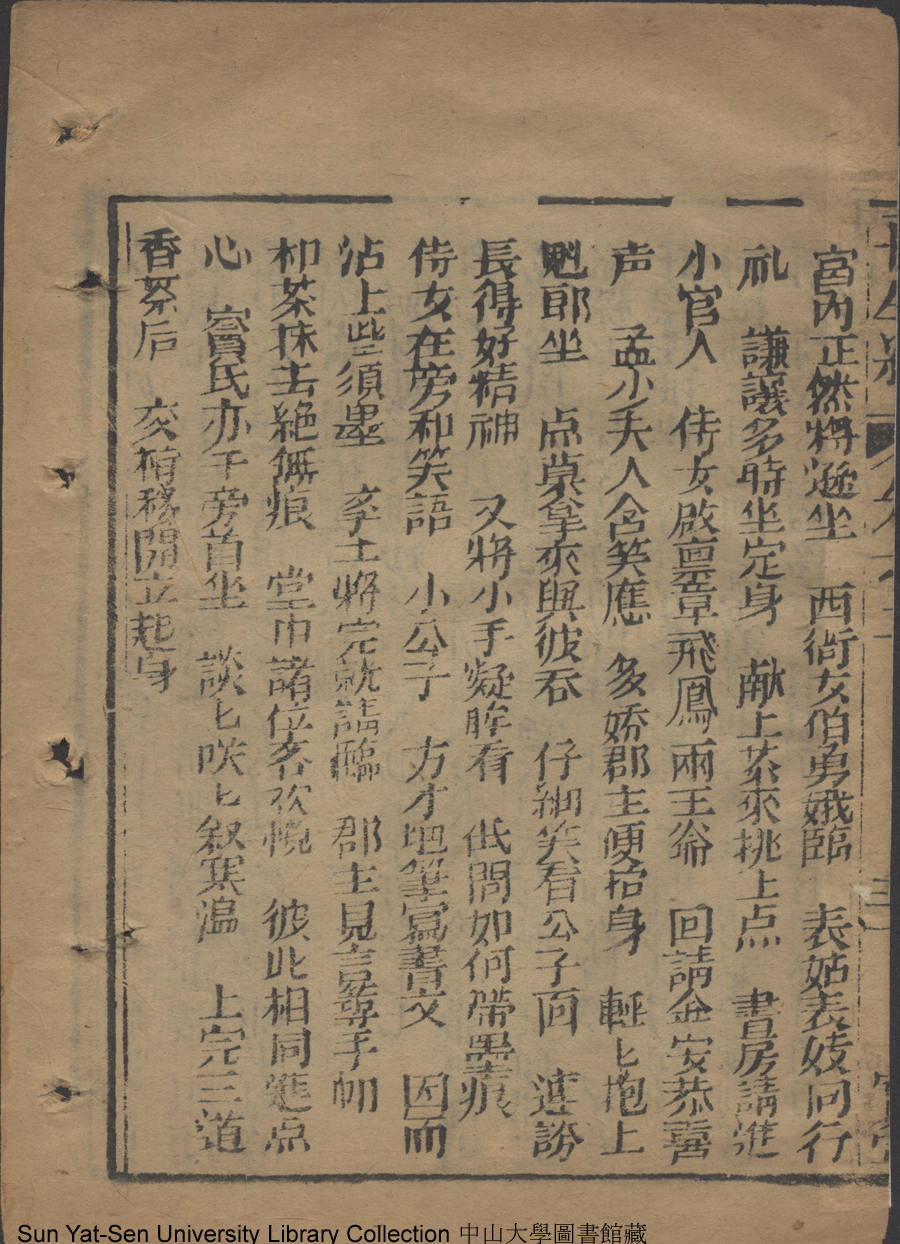 宮內正然將遜坐　西衙女伯勇娥臨　表姑表妓同行
礼　謙讓多時坐定身　献上茶來挑上点　書房請進
小官人　侍女啟稟韋飛鳳　兩王爺　回請金安恭喜
声　孟小夫人含笑應　多嬌郡主便抬身　輕匕抱上
魁耶坐　点菓拿來與彼吞　仔細笑看公子面　連誇
長得好精神　又將小手凝眸看　低問如何帶墨痕
侍女在旁和笑語　小公子　方才把筆寫書文　因而
沾上些須墨　李士將完就請臨　郡主見言蕁手帕
和茶抹去絕無痕　堂中諸位客欢悅　彼此相同進点
心　竇氏亦干旁首坐　談匕咲匕叙寒溫　上完三道
香茶后　交椅移開立起身
Sun Yat-Sen University Library Collection 中山大學圖書館藏